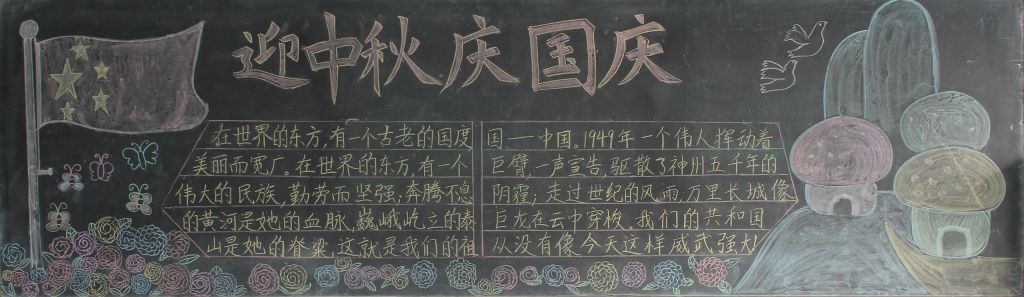 迎中秋庆国庆
在世界的东方,有一个古老的国度
美丽而宽广。在世界的东方,有一个
伟大的民族,勤劳而坚强;奔腾不息
的黄河是她的血脉,巍峨屹立的泰
山是她的脊梁,这就是我们的祖
国——中国。1949年一个伟人挥动着
巨臂,一声宣告,驱散了神州五千年的
阴霾;走过世纪的风雨,万里长城像
巨龙在云中穿梭。我们的共和国
从没有像今天这样威武强大!